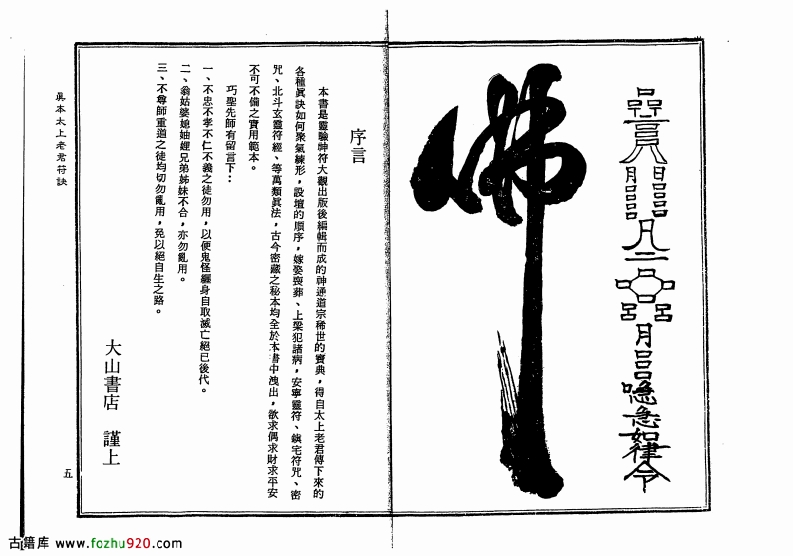 佛
隐急如律令
序言
本書是靈驗神符大觀出版後編輯而成的神通道宗稀世的寶典，得自太上老君傳下來的
各種眞訣如何聚氣練形，設壇的順序，嫁娶喪葬、上梁犯諸病，安寧靈符、鎭宅符咒、密
咒、北斗玄靈符經、等萬類眞法，古今密藏之秘本均全於本書中洩出，欲求偶求財求平安
不可不備之實用範本。
巧聖先師有留言下：
一、不忠不孝不仁不義之徒勿用，以便鬼怪纒身自取滅亡絕已後代。
二、翁姑婆媳妯娌兄弟姊妹不合，亦勿亂用。
三、不尊師重道之徒均切勿亂用，免以絕自生之路。
大山書店　謹上
眞本太上老君符訣
五
古籍库 www.fozhu920.com